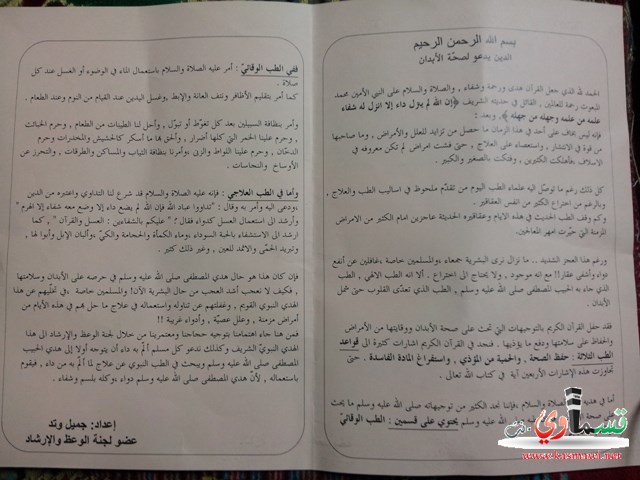 بسم الله الرحمن الرحيم
الدين يدعو لصحّة الأبدان
الحمد لله الذي جعل القرآن هدى ورحمة وشفاء , والصلاة والسلام على النبي الأمين محمد
المبعوث رحمة للعالمين , القائل في حديثه الشريف ﴿إن الله لم ينزل داء إلا انزل له شفاء
علمه من علمه وجهله من جهله ﴾ , وبعد :
فإنه ليس بخاف على أحد في هذا الزمان ما حصل من تزايد للعلل والأمراض , وما صاحبها
من قوة في الانتشار , واستعصاء على العلاج , حتى فشت امراض لم تكن معروفه في
الاسلاف ,فأهلكت الكثيرين , وفتكت بالصغير والكبير .
كل ذلك رغم ما توصّل اليه علماء الطب اليوم من تقدّم ملحوظ في اساليب الطب والعلاج ,
وبالرغم من اختراع الكثير من انفس العقاقير .
وكم وقف الطب الحديث في هذه الايام وعقاقيره الحديثة عاجزين امام الكثير من الامراض
المزمنة التي حيّرت امهر المعالجين.
ورغم هذا العجز الشديد .. ما تزال نرى البشرية جمعاء ,والمسلمين خاصة ,غافلين عن أنفع
دواء وأنقى عقار!! مع انه موجود , ولا يحتاج الى اختراع . ألا انه الطب الالهي , الطب
الذي جاء به الحبيب المصطفى صلى الله عليه وسلم , الطب الذي تعدّى القلوب حتى شمل
الأبدان .
فقد حفل القرآن الكريم بالتوجيهات التي تحث على صحة الأبدان ووقايتها من الأمراض
والحفاظ على سلامتها ودفع ما يؤذيها . فنجد في القرآن الكريم اشارات كثيرة الى قواعد
الطب الثلاثة : حفظ الصحة , والحمية من المؤذي , واستفراغ المادة الفاسدة . حتى
تجاوزت هذه الإشارات الأربعين آية في كتاب الله تعالى .
أما في هديه الصلاة والسلام ,فإننا نجد الكثير من توجيهاته صلى الله عليه وسلم ما يحث
على صحة الله عليه وسلم يحتوي على قسمين : الطب الوقائيّ
ففي الطب الوقائيّ : أمر عليه الصلاة والسلام باستعمال الماء في الوضوء أو الغسل عند كل
صلاة .
كما أمر بتقليم الأظافر ونتف العانة والإبط ,وغسل اليدين عند القيام من النوم وعند الطعام .
وأمر بنظافة السبيلين بعد كل تغوّط أو تبوّل , وأحل لنا الطيبات من الطعام , وحرم الخبائث
, وحرم علينا الخمر التي كلها أضرار , وألحق بها ما أسكر كالحشيش والمخدرات وحرم
الدخّان , وحرم علينا اللواط والزنى ,وأمرنا بنظافة الثياب والمساكن والطرقات , والتحرز عن
الأوساخ والنجاسات .
وأما في الطب العلاجي : فإنه عليه الصلاة والسلام قد شرع لنا التداوي واعتبره من الدين
,ودعى اليه وأمر به وقال : "تداووا عباد الله فإن الله لم يضع داء إلا وضع معه شفاء إلا الهرم "
وأرشد الى استعمال العسل كدواء فقال :" عليكم بالشفاءين : العسل والقرآن " , كما
ارشد الى الاستشفاء بالحبة السوداء ,وماء الكمأة والحجامة والكيّ ,وألبان الإبل وأبوا لها ,
وتبريد الحمّى والاثمد للعين , وغير ذلك كثير .
فإن كان هذا هو حال هدي المصطفى صلى الله عليه وسلم في حرصه على الأبدان وسلامتها
, فكيف لا نعجب أشد العجب من حال البشرية الآن! والمسلمين خاصة ,في تخلّيهم عن هذا
الهدي النبوي القويم , وغفلتهم عن تناوله واستعماله في علاج ما حل بهم في هذه الأيام من
أمراض مزمنة , وعلل عصيّة , وأدواء غريبة !!
فمن هنا جاء اهتمامنا بتوجيه حجاجنا ومعتمرينا من خلال لجنة الوعظ والإرشاد الى هذا
الهدي النبويّ الشريف وكذلك ندعو كل مسلم ألمّ به داء أن يتوجه أولا إلى هدي الحبيب
المصطفى صلى الله عليه وسلم ويبحث في الطب النبوي عن علاج لما ألم به من داء , فيقوم
باستعماله , لأن هدي المصطفى صلى الله عليه وسلم دواء ,وكله بلسم وشفاء .
إعداد: جميل وتد
عضو لجنة الوعظ والإرشاد
قسماوي نت
www.kesmawi.net